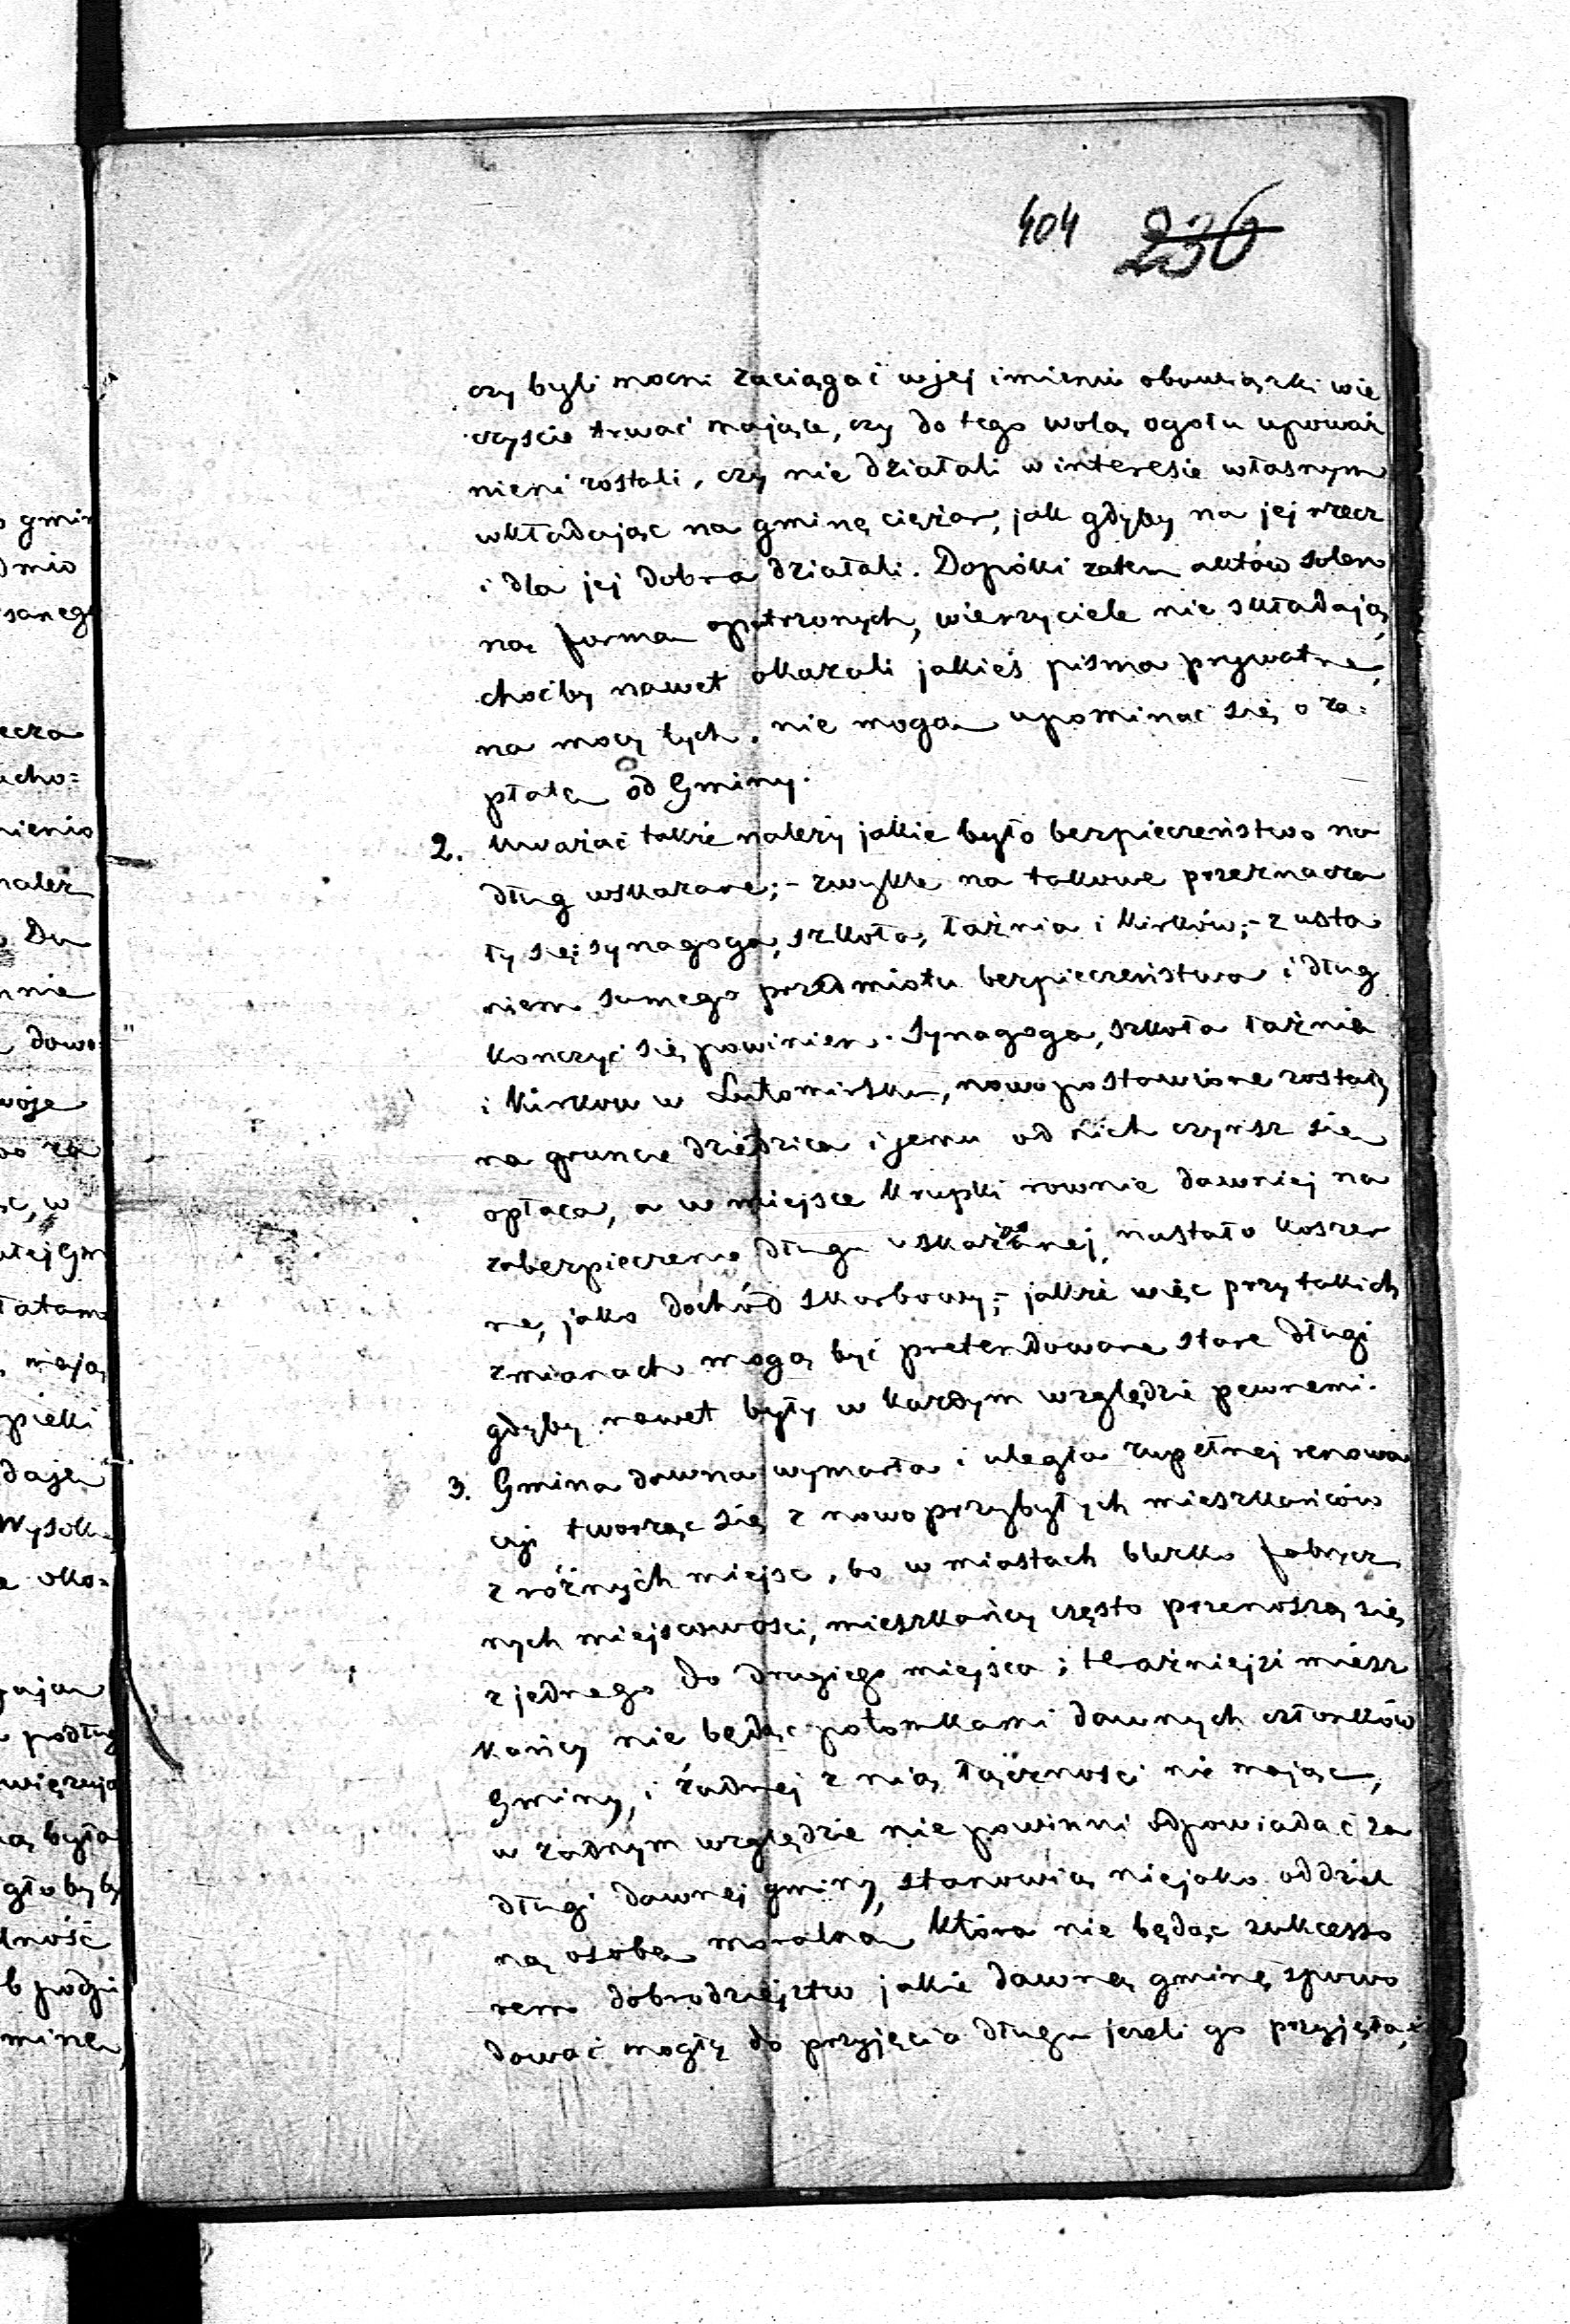 404 236
czy byli mocni zaciągać w jej imieniu obowiązki wie
czyście trwać mające, czy do tego wolą ogołu upoważ
nieni zostali, czy nie działali w interesie własnym
wkładając na gminę ciężar, jak gdyby na jej rzecz
i dla jej dobra działali. Dopóki zatem aktów solen
ną forma opatrzonych, wierzyciele nie składają,
choćby nawet okazali jakieś pisma prywatne,
na mocy tych, nie mogą upominać się o za=
płatą od Gminy.
2. Uważać także należy jakie było bezpieczeństwo na
dług wskazane; - zwykle na takowe przeznacza
ły się: synagoga, szkoła, łaźnia i kirków; - z usta
niem samego przedmiotu bezpieczeństwa i dług
konczyć się powinien. Synagoga, szkoła łaźnia
i kirkow w Lutomirsku, nowo postawione zostały
na gruncie dziedzica i jemu od nich czynsz się
opłaca, a w miejsce Krupki rownie dawniej na
zabezpieczenie długu wskazanej, nastało koszer
ne, jako dochód skarbowy; - jakże więc przy takich
zmianach mogą być pretendowane stare długi
gdyby nawet były w każdym względzie pewnemi.
3. Gmina dawna wymarła i uległa zupełnej renowa
cyi tworząc się z nowoprzybyłych mieszkańców
z różnych miejsc, bo w miastach blizko fabrycz
nych miejscowosci, mieszkańcy często przenoszą się
z jednego do drugiego miejsca; teraźniejsi miesz
kańcy nie będąc potomkami dawnych członków
Gminy, i żadnej z nią łączności nie mając,
w żadnym względzie nie powinni odpowiadać za
długi dawnej gminy, stanowią niejako oddziel
ną osobą moralną która nie będąc sukcesso
rem dobrodziejstw jakie dawną gminę spowo
dować mogły do przyjęcia długu jezeli go przyjęła,